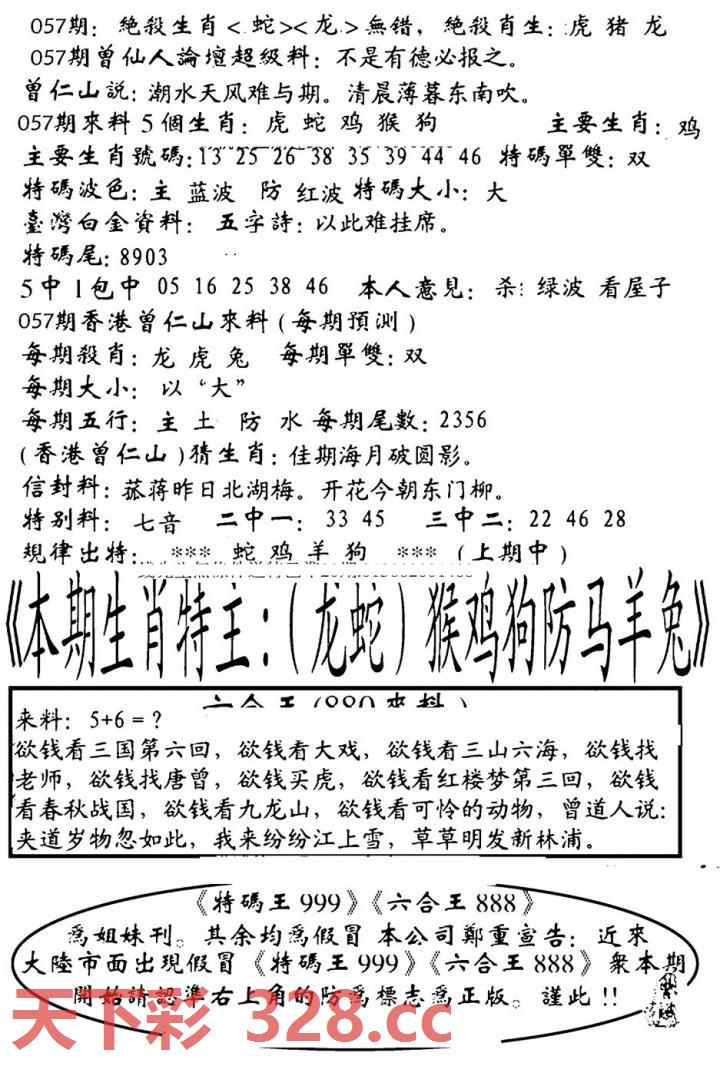 057期: 絶殺生肖<蛇><龙>無错，絶殺肖生:虎 猪 龙
057期曾仙人論壇超級料:不是有德必报之。
曾仁山説:潮水天风难与期。清晨薄暮东南吹。
057期來料5個生肖: 虎 蛇 鸡 猴 狗 主要生肖: 鸡
主要生肖號碼:13 25 26 38 35 39 44 46 特碼單雙: 双
特碼波色: 主 蓝波 防 红波 特碼大小: 大
臺灣白金資料: 五字詩:以此难挂席。
特碼尾:8903
5中1包中 05 16 25 38 46 本人意見: 杀:绿波 看屋子
057期香港曾仁山來料(每期預测)
每期殺肖: 龙 虎 兔 每期單雙:双
每期大小: 以“大”
每期五行: 主 土 防 水 每期尾數:2356
(香港曾仁山)猜生肖:佳期海月破圆影。
信封料:菰蒋昨日北湖梅。开花今朝东门柳。
特别料: 七音 二中一: 33 45 三中二: 22 46 28
規律出特: *** 蛇 鸡 羊 狗 *** (上期中)
《本期生肖特主:(龙蛇)猴鸡狗防马羊兔》
来料: 5+6=?
欲钱看三国第六回，欲钱看大戏，欲钱看三山六海，欲钱找
老师，欲钱找唐曾，欲钱买虎，欲钱看红楼梦第三回，欲钱
看春秋战国，欲钱看九龙山，欲钱看可怜的动物，曾道人说:
夹道岁物忽如此，我来纷纷江上雪，草草明发新林浦。
《特碼王999》《六合王888》
爲姐妹刊。其余均爲假冒 本公司鄭重宣告: 近來
大陸市面出現假冒《特碼王999》《六合王888》衆本期
開始請認準右上角的防爲標志爲正版。謹此!!
天下彩 328.cc